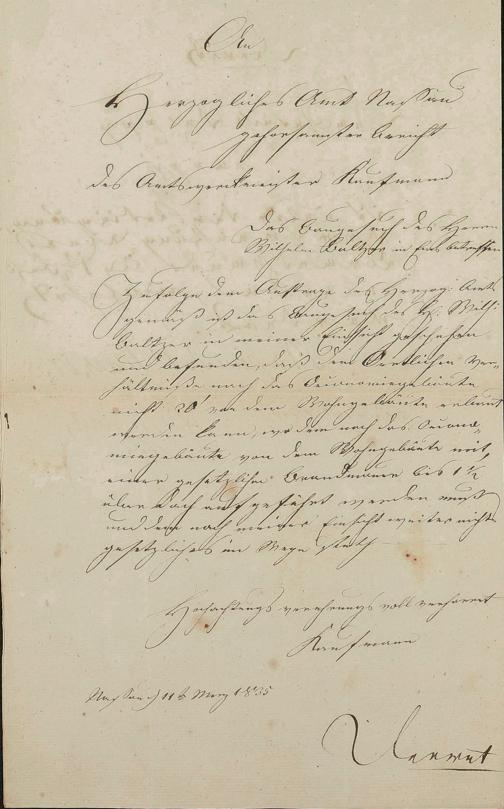 An
Herzogliches Amt Nassau
gehorsamster Bericht
des Amtswerkmeister Kaufmann
Das Baugesuch des Herrn
Wilhelm Baltzer in Ems betreffen
Zufolge dem Auftrage des Herzog. Amts
gemäß ist das Baugesuch des H. Wilh.
Baltzer in meiner Einsicht geschehen
und befunden, daß dem Oertlichen Ver-
hältniße nach das Oeconomiegebäute
nicht 20' von dem Wohngebäute erbaut
werden kann, wo dem nach das Oecono-
miegebäute von dem Wohngebäute mit
einer gesetzlichen Brandmauer bis 1 1/2
über Dach aufgeführt werden muß
und dem nach meiner Einsicht weiter nichts
gesetzliches im Wege steth
Hochachtungs verehrungs voll verharret
Kaufmann
Nassau 11t Merz 1835